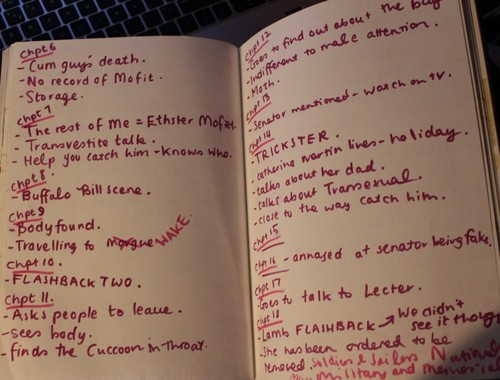 Chpt 6
- Cum guy's death.
- No record of Mofit.
- Storage.
Chpt 7
- The rest of me = Ethster Mofiet
- Transvestite talk.
- Help you catch him - knows who.
Chpt 8.
- Buffalo Bill scene.
Chpt 9
- Body found.
- Travelling to morgue WAKE.
Chpt 10.
- FLASHBACK TWO.
Chpt 11.
- Asks people to leave.
- sees body.
- finds the Cuccoon in throat.
Chpt 12
- Goes to find out about the bug
- Indifferent to male attention.
- Moth.
Chpt 13
- Senator mentioned - watch on tv.
Chpt 14
- TRICKSTER.
- catherine martin lives - holiday.
- talks about her dad.
- talks about Transexual.
- close to the way catch him.
Chpt 15
Chpt 16 - annoyed at senator being fake.
Chpt 17
- Goes to talk to Lecter.
Chpt 18
- Lamb FLASHBACK → We didn't see it though
- She has been ordered to be
removed Soldiers & Sailors National
Military and memorial